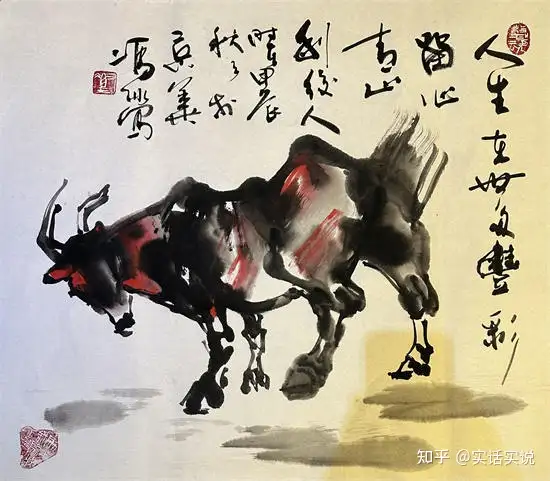 人生在世多豐彩
留
青山
後人
時甲辰
秋
京華
馮
知乎 @实话实说